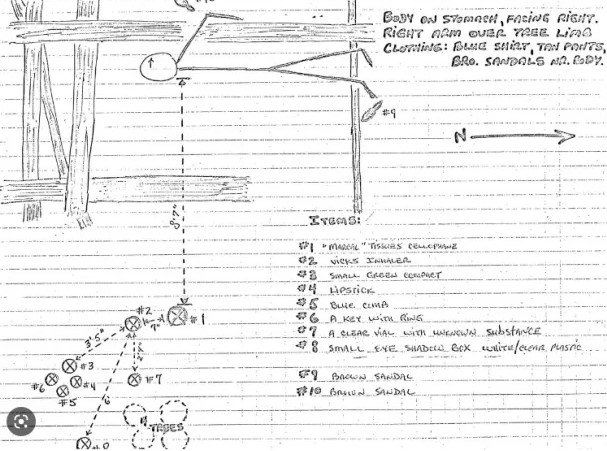 BODY ON STOMACH, FACING RIGHT.
RIGHT ARM OVER TREE LIMB
CLOTHING: BLUE SHIRT, TAN PANTS,
BRO. SANDALS NR. BODY.
#9
N
8'7"
ITEMS:
#1 "MARCAL" TISSUES CELLOPHANE
#2 VICKS INHALER
#3 SMALL GREEN COMPACT
#4 LIPSTICK
#5 BLUE COMB
#6 A KEY WITH RING
#7 A CLEAR VIAL WITH UNKNOWN SUBSTANCE
#8 SMALL EYE SHADOW BOX WHITE/CLEAR PLASTIC
#9 BROWN SANDAL
#10 BROWN SANDAL
#2
#1
7"
3'5"
#3
#6
#4
#7
#5
6'
TREES